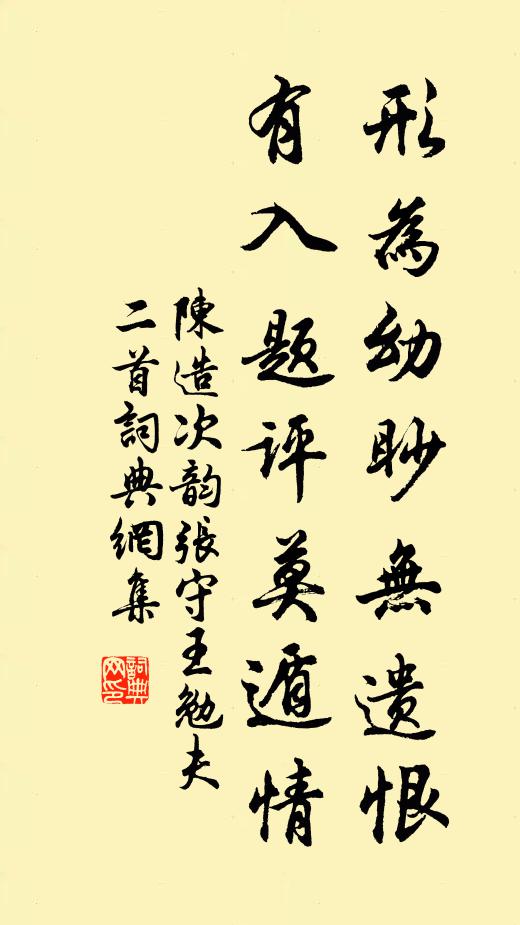 形為幼眇無遺恨
有入題評莫遁情
陳造次韵張守王勉夫
二首詞典網集
詞典
网印